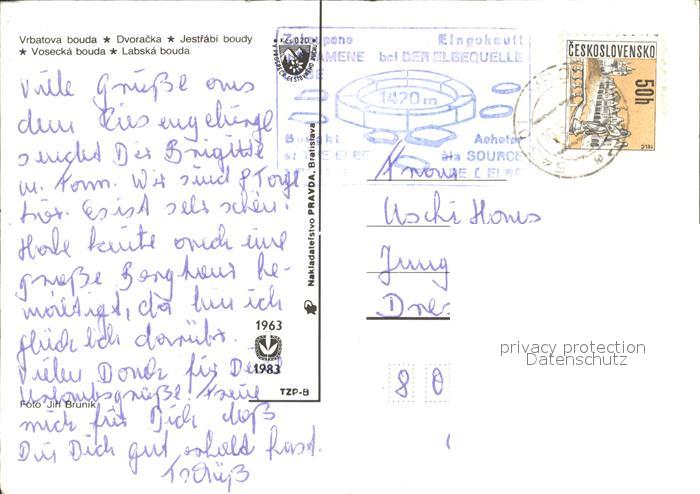 Vrbatova bouda ★ Dvoračka ★ Jestřábí boudy
★ Vosecká bouda ★ Labská bouda
Viele Grüße aus
dem Riesengebirge
sendet Dir Brigitte
u. Fam. Wir sind 8 Tage
hier. Es ist sehr schön.
Habe heute auch eine
große Berghaus be-
wältigt, da bin ich
glücklich darüber.
Vielen Dank für Deine
Urlaubsgrüße. Freue
mich für Dich daß
Du Dich gut erholt hast.
Tschüß
Foto Jiří Bruník
1963
1983
TZP-B
Nakladatelství PRAVDA, Bratislava
Zakoupeno Eingekauft
U PRAMENE bei DER ELBEQUELLE
1420 m
Bought Acheté
at THE ELBE à la SOURCE
DE L'ELBE
ČESKOSLOVENSKO
50h
Frau
Uschi Hans
Jung
Dre
8 0
privacy protection
Datenschutz